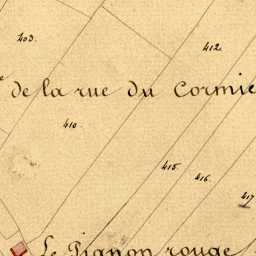 403.
412.
de la rue du Cormie
410.
415.
416.
417
Le Pignon rouge